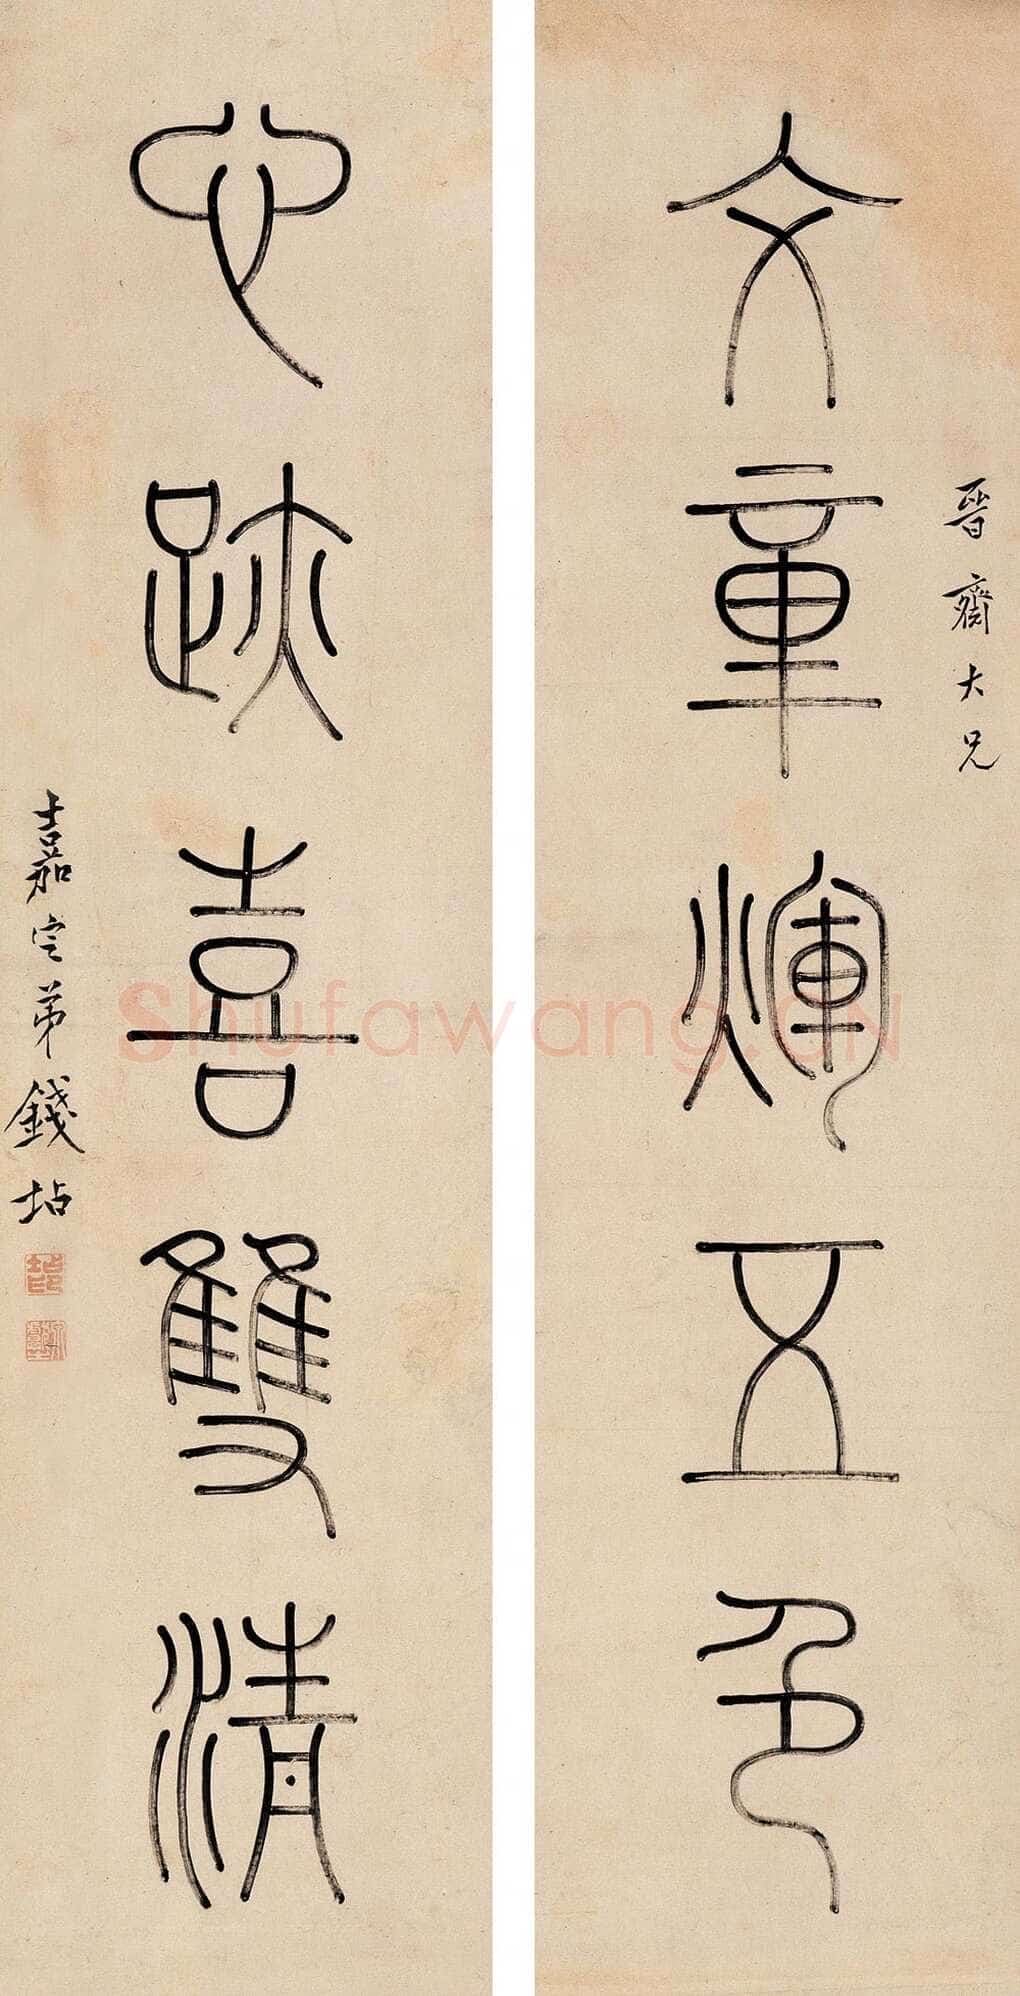 晉齋大兄
文章輝五色
心跡喜雙清
嘉定弟錢坫
Shufawang.CN